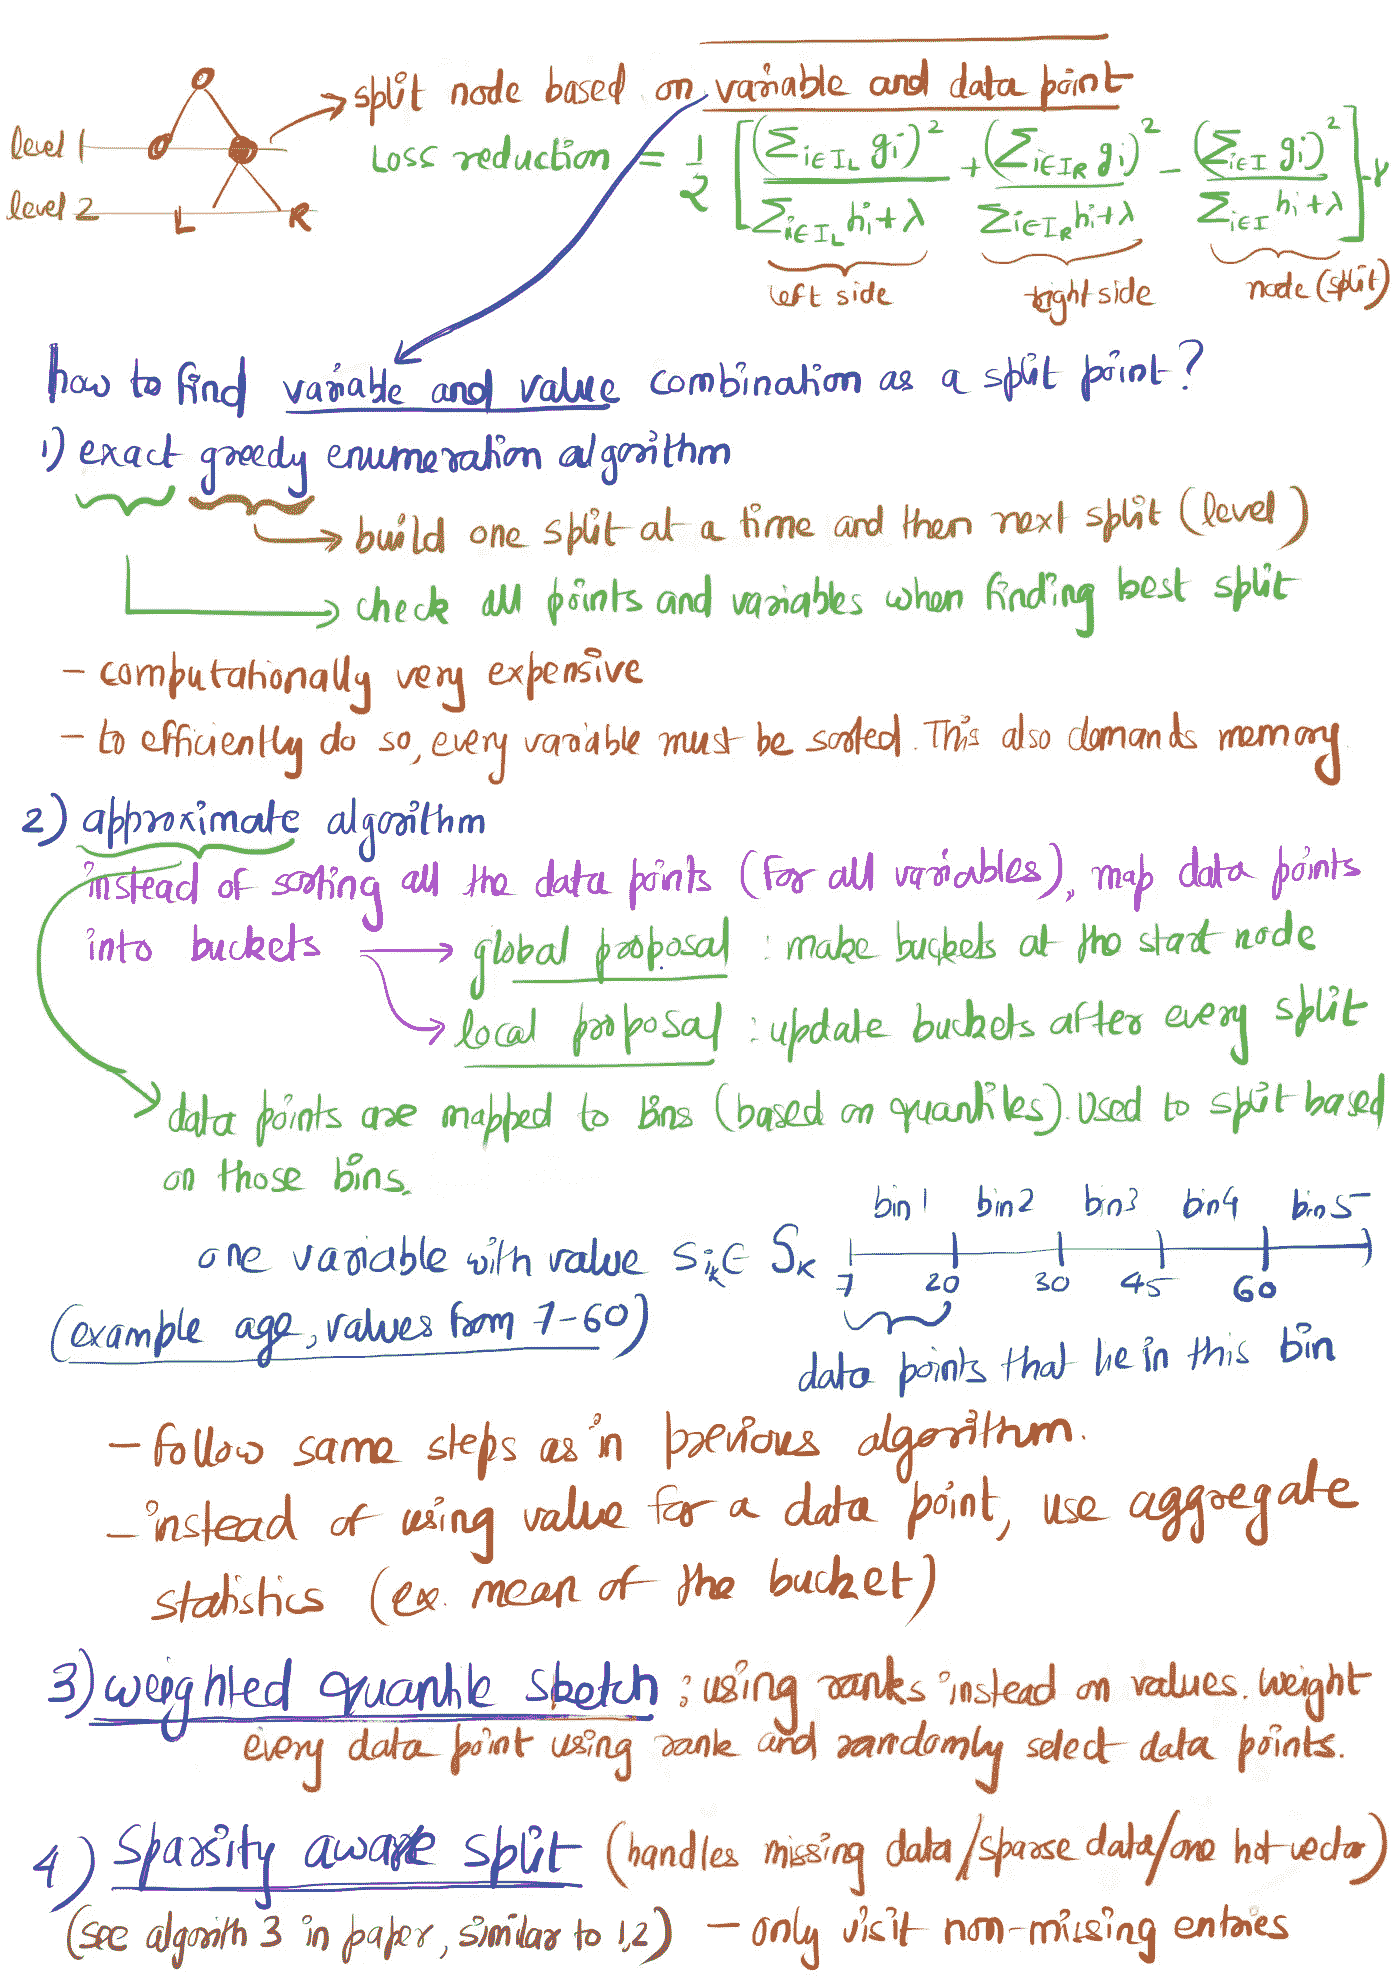 split node based on variable and data point
level 1
level 2
L R
Loss reduction = 1/2 [ (∑i∈I_L gi)² / (∑i∈I_L hi + λ) + (∑i∈I_R gi)² / (∑i∈I_R hi + λ) - (∑i∈I gi)² / (∑i∈I hi + λ) ] - γ
left side right side node (split)
how to find variable and value combination as a split point?
1) exact greedy enumeration algorithm
build one split at a time and then next split (level)
check all points and variables when finding best split
- computationally very expensive
- to efficiently do so, every variable must be sorted. This also demands memory
2) approximate algorithm
instead of sorting all the data points (for all variables), map data points
into buckets → global proposal : make buckets at the start node
local proposal : update buckets after every split
data points are mapped to bins (based on quantiles). Used to split based
on those bins.
bin 1 bin 2 bin 3 bin 4 bin 5
one variable with value Sik ∈ Sk
7 20 30 45 60
(example age, values from 7-60)
data points that lie in this bin
- follow same steps as in previous algorithm.
- instead of using value for a data point, use aggregate
statistics (ex. mean of the bucket)
3) weighted quantile sketch : using ranks instead on values. weight
every data point using rank and randomly select data points.
4) sparsity aware split (handles missing data/sparse data/one hot vector)
(see algorith 3 in paper, similar to 1,2) - only visit non-missing entries